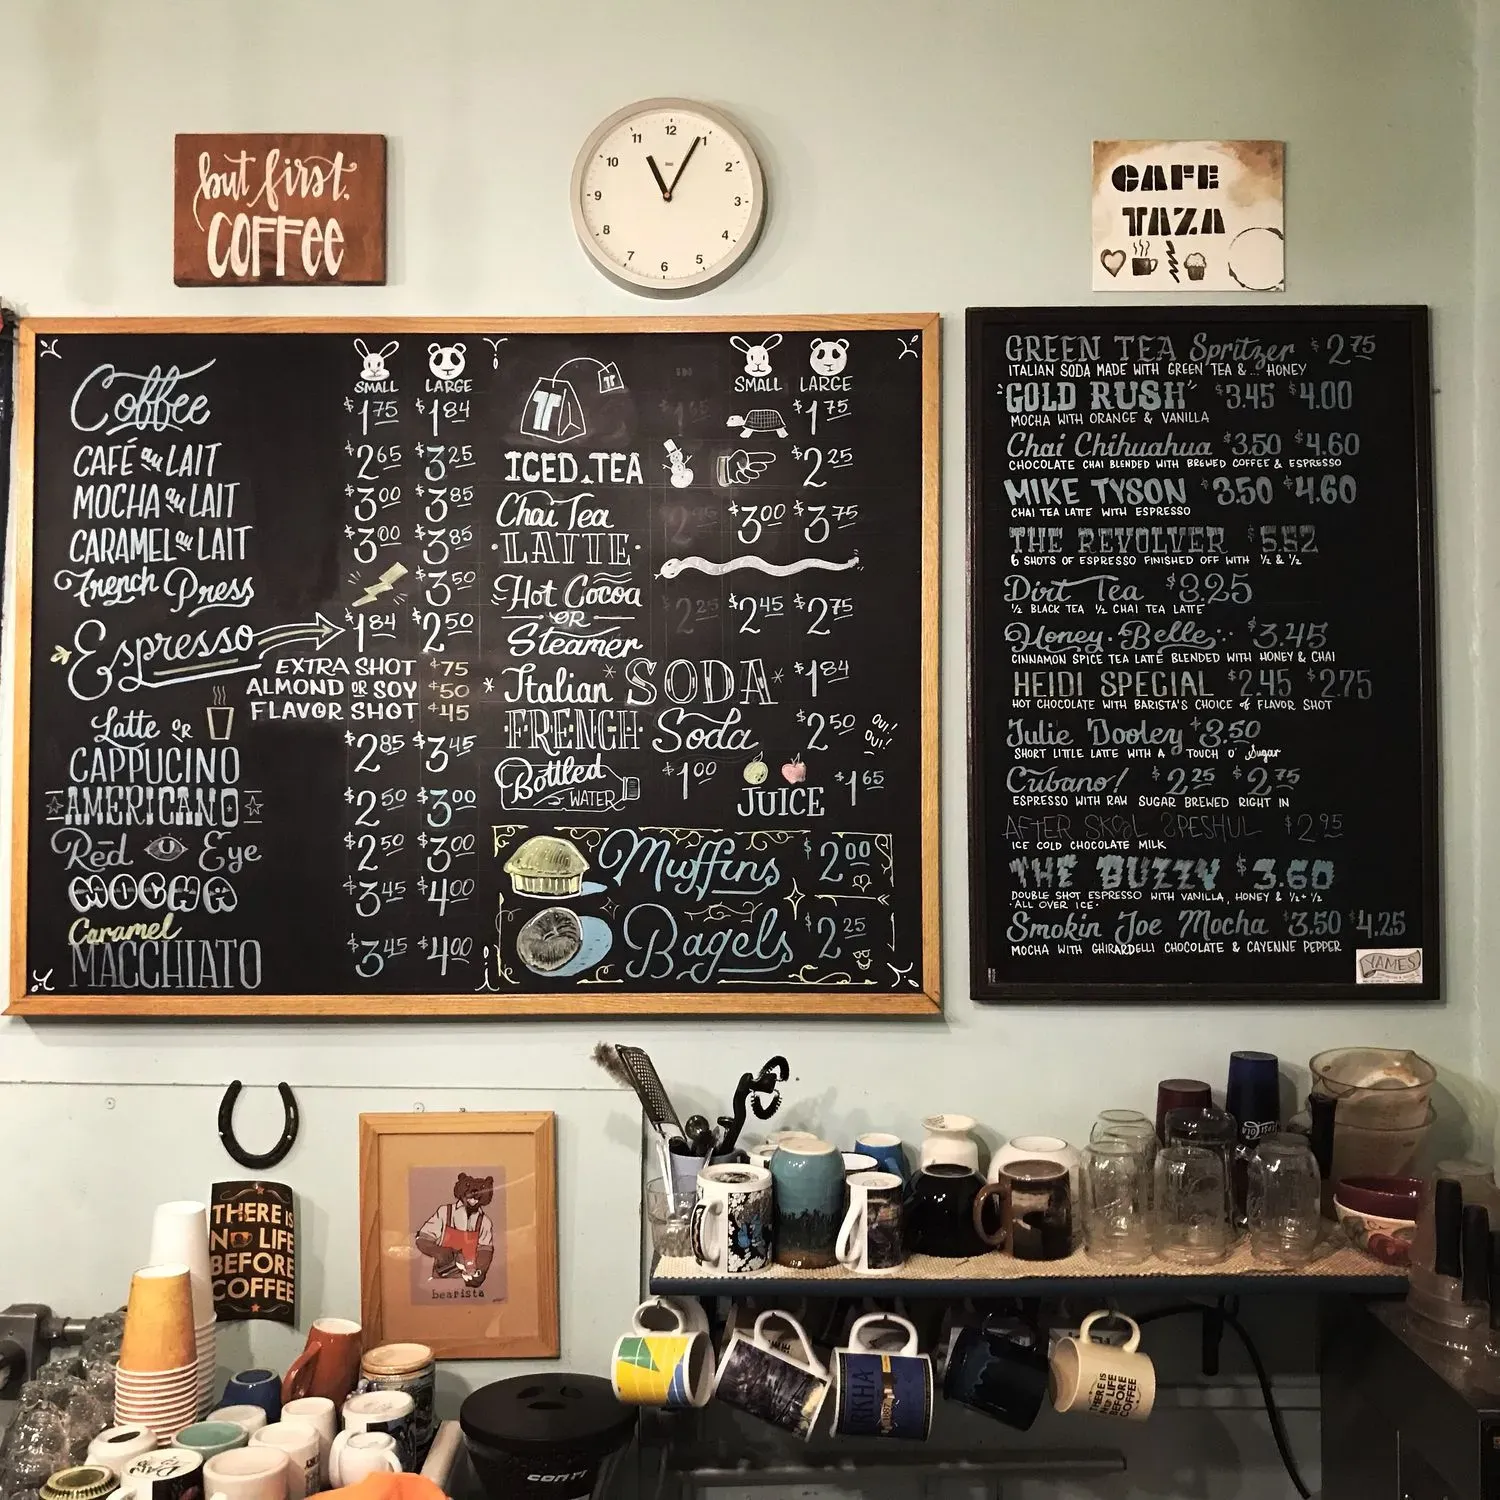 but first,
COFFEE
12
1
2
3
4
5
6
7
8
9
10
11
CAFE
TAZA
SMALL LARGE
Coffee $1.75 $1.84
CAFÉ au LAIT $2.65 $3.25
MOCHA au LAIT $3.00 $3.85
CARAMEL au LAIT $3.00 $3.85
French Press $3.50
Espresso $1.84 $2.50
EXTRA SHOT $.75
ALMOND OR SOY $.50
FLAVOR SHOT $.45
Latte OR
CAPPUCINO $2.85 $3.45
AMERICANO $2.50 $3.00
Red Eye $2.50 $3.00
MOCHA $3.45 $4.00
Caramel
MACCHIATO $3.45 $4.00
SMALL LARGE
T T $1.75
ICED TEA $2.25
Chai Tea
LATTE $3.00 $3.75
Hot Cocoa
OR $2.25 $2.45 $2.75
Steamer
Italian SODA $1.84
FRENCH Soda $2.50 OUI! OUI!
Bottled
WATER $1.00 JUICE $1.65
Muffins $2.00
Bagels $2.25
GREEN TEA Spritzer $2.75
ITALIAN SODA MADE WITH GREEN TEA &... HONEY
"GOLD RUSH" $3.45 $4.00
MOCHA WITH ORANGE & VANILLA
Chai Chihuahua $3.50 $4.60
CHOCOLATE CHAI BLENDED WITH BREWED COFFEE & ESPRESSO
MIKE TYSON $3.50 $4.60
CHAI TEA LATTE WITH ESPRESSO
THE REVOLVER $5.52
6 SHOTS OF ESPRESSO FINISHED OFF WITH ½ & ½
Dirt Tea $3.25
½ BLACK TEA ½ CHAI TEA LATTE
Honey Belle $3.45
CINNAMON SPICE TEA LATE BLENDED WITH HONEY & CHAI
HEIDI SPECIAL $2.45 $2.75
HOT CHOCOLATE WITH BARISTA'S CHOICE of FLAVOR SHOT
Julie Dooley $3.50
SHORT LITTLE LATTE WITH A TOUCH O' Sugar
Cubano! $2.25 $2.75
ESPRESSO WITH RAW SUGAR BREWED RIGHT IN
AFTER SKOOL SPESHUL $2.95
ICE COLD CHOCOLATE MILK
THE BUZZY $3.60
DOUBLE SHOT ESPRESSO WITH VANILLA, HONEY & ½ + ½
·ALL OVER ICE·
Smokin Joe Mocha $3.50 $4.25
MOCHA WITH GHIRARDELLI CHOCOLATE & CAYENNE PEPPER
YAMES
THERE IS
NO LIFE
BEFORE
COFFEE
bearista
PEPSI COLA
THERE IS
NO LIFE
BEFORE
COFFEE
conti